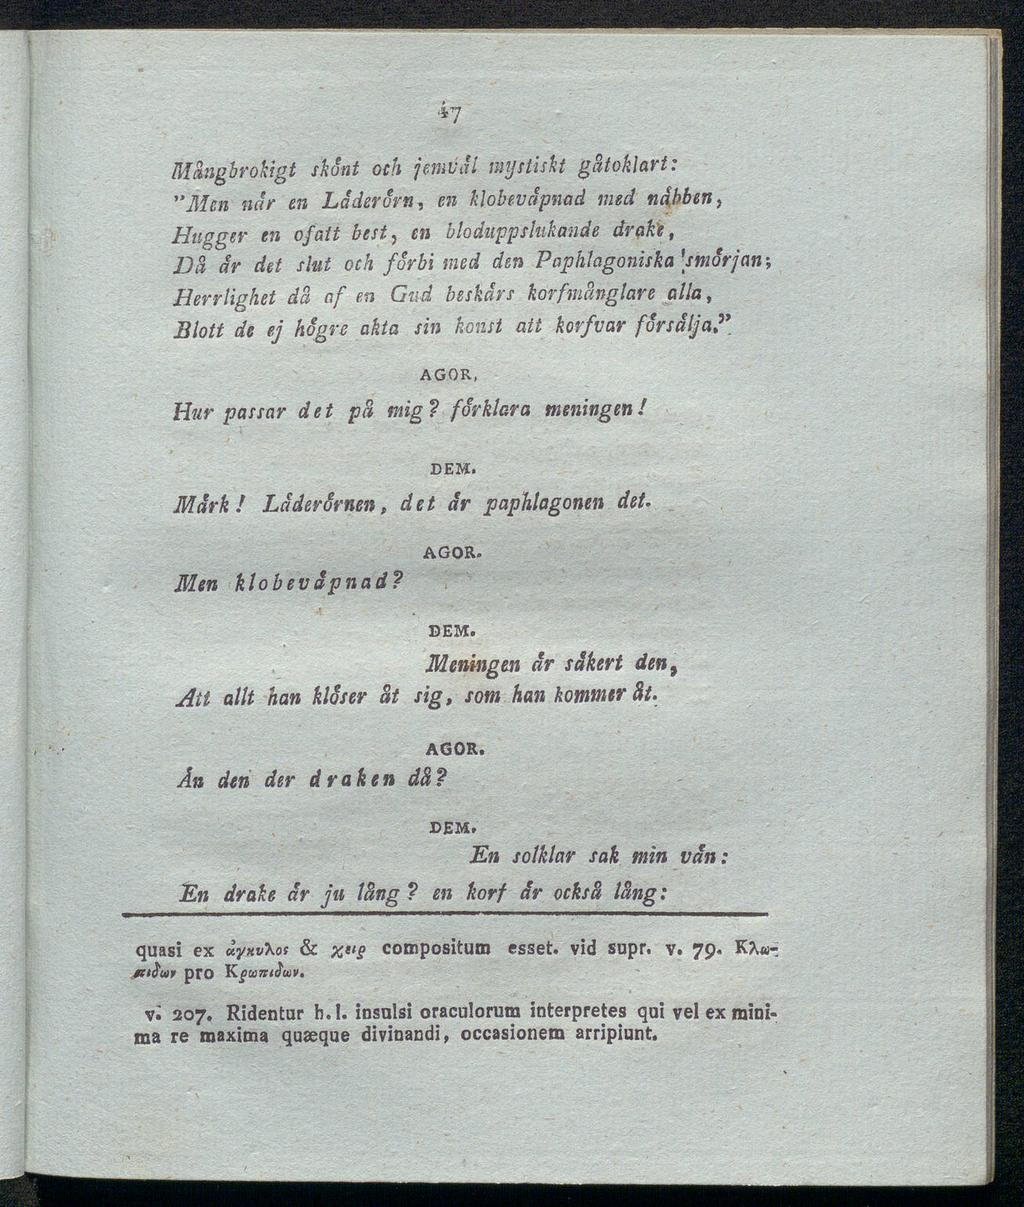 47
Mångbrokigt skönt och jemväl mystiskt gåtoklart:
"Men när en Läderörn, en klobeväpnad med näbben,
Hugger en ofatt best, en bloduppslukande drake,
Då är det slut och förbi med den Paphlagoniska smörjan;
Herrlighet då af en Gud beskärs korfmånglare alla,
Blott de ej högre akta sin konst att korfvar försälja."
AGOR.
Hur passar det på mig? förklara meningen!
DEM.
Märk! Läderörnen, det är paphlagonen det.
AGOR.
Men klobeväpnad?
DEM.
Meningen är säkert den,
Att allt han klöser åt sig, som han kommer åt.
AGOR.
Än den der draken då?
DEM.
En solklar sak min vän:
En drake är ju lång? en korf är också lång:
quasi ex ἀγκυλος & χειρ compositum esset. vid supr. v. 79. Κλω-
πιδων pro Κρωπιδων.
v. 207. Ridentur h. l. insulsi oraculorum interpretes qui vel ex mini-
ma re maxima quæque divinandi, occasionem arripiunt.